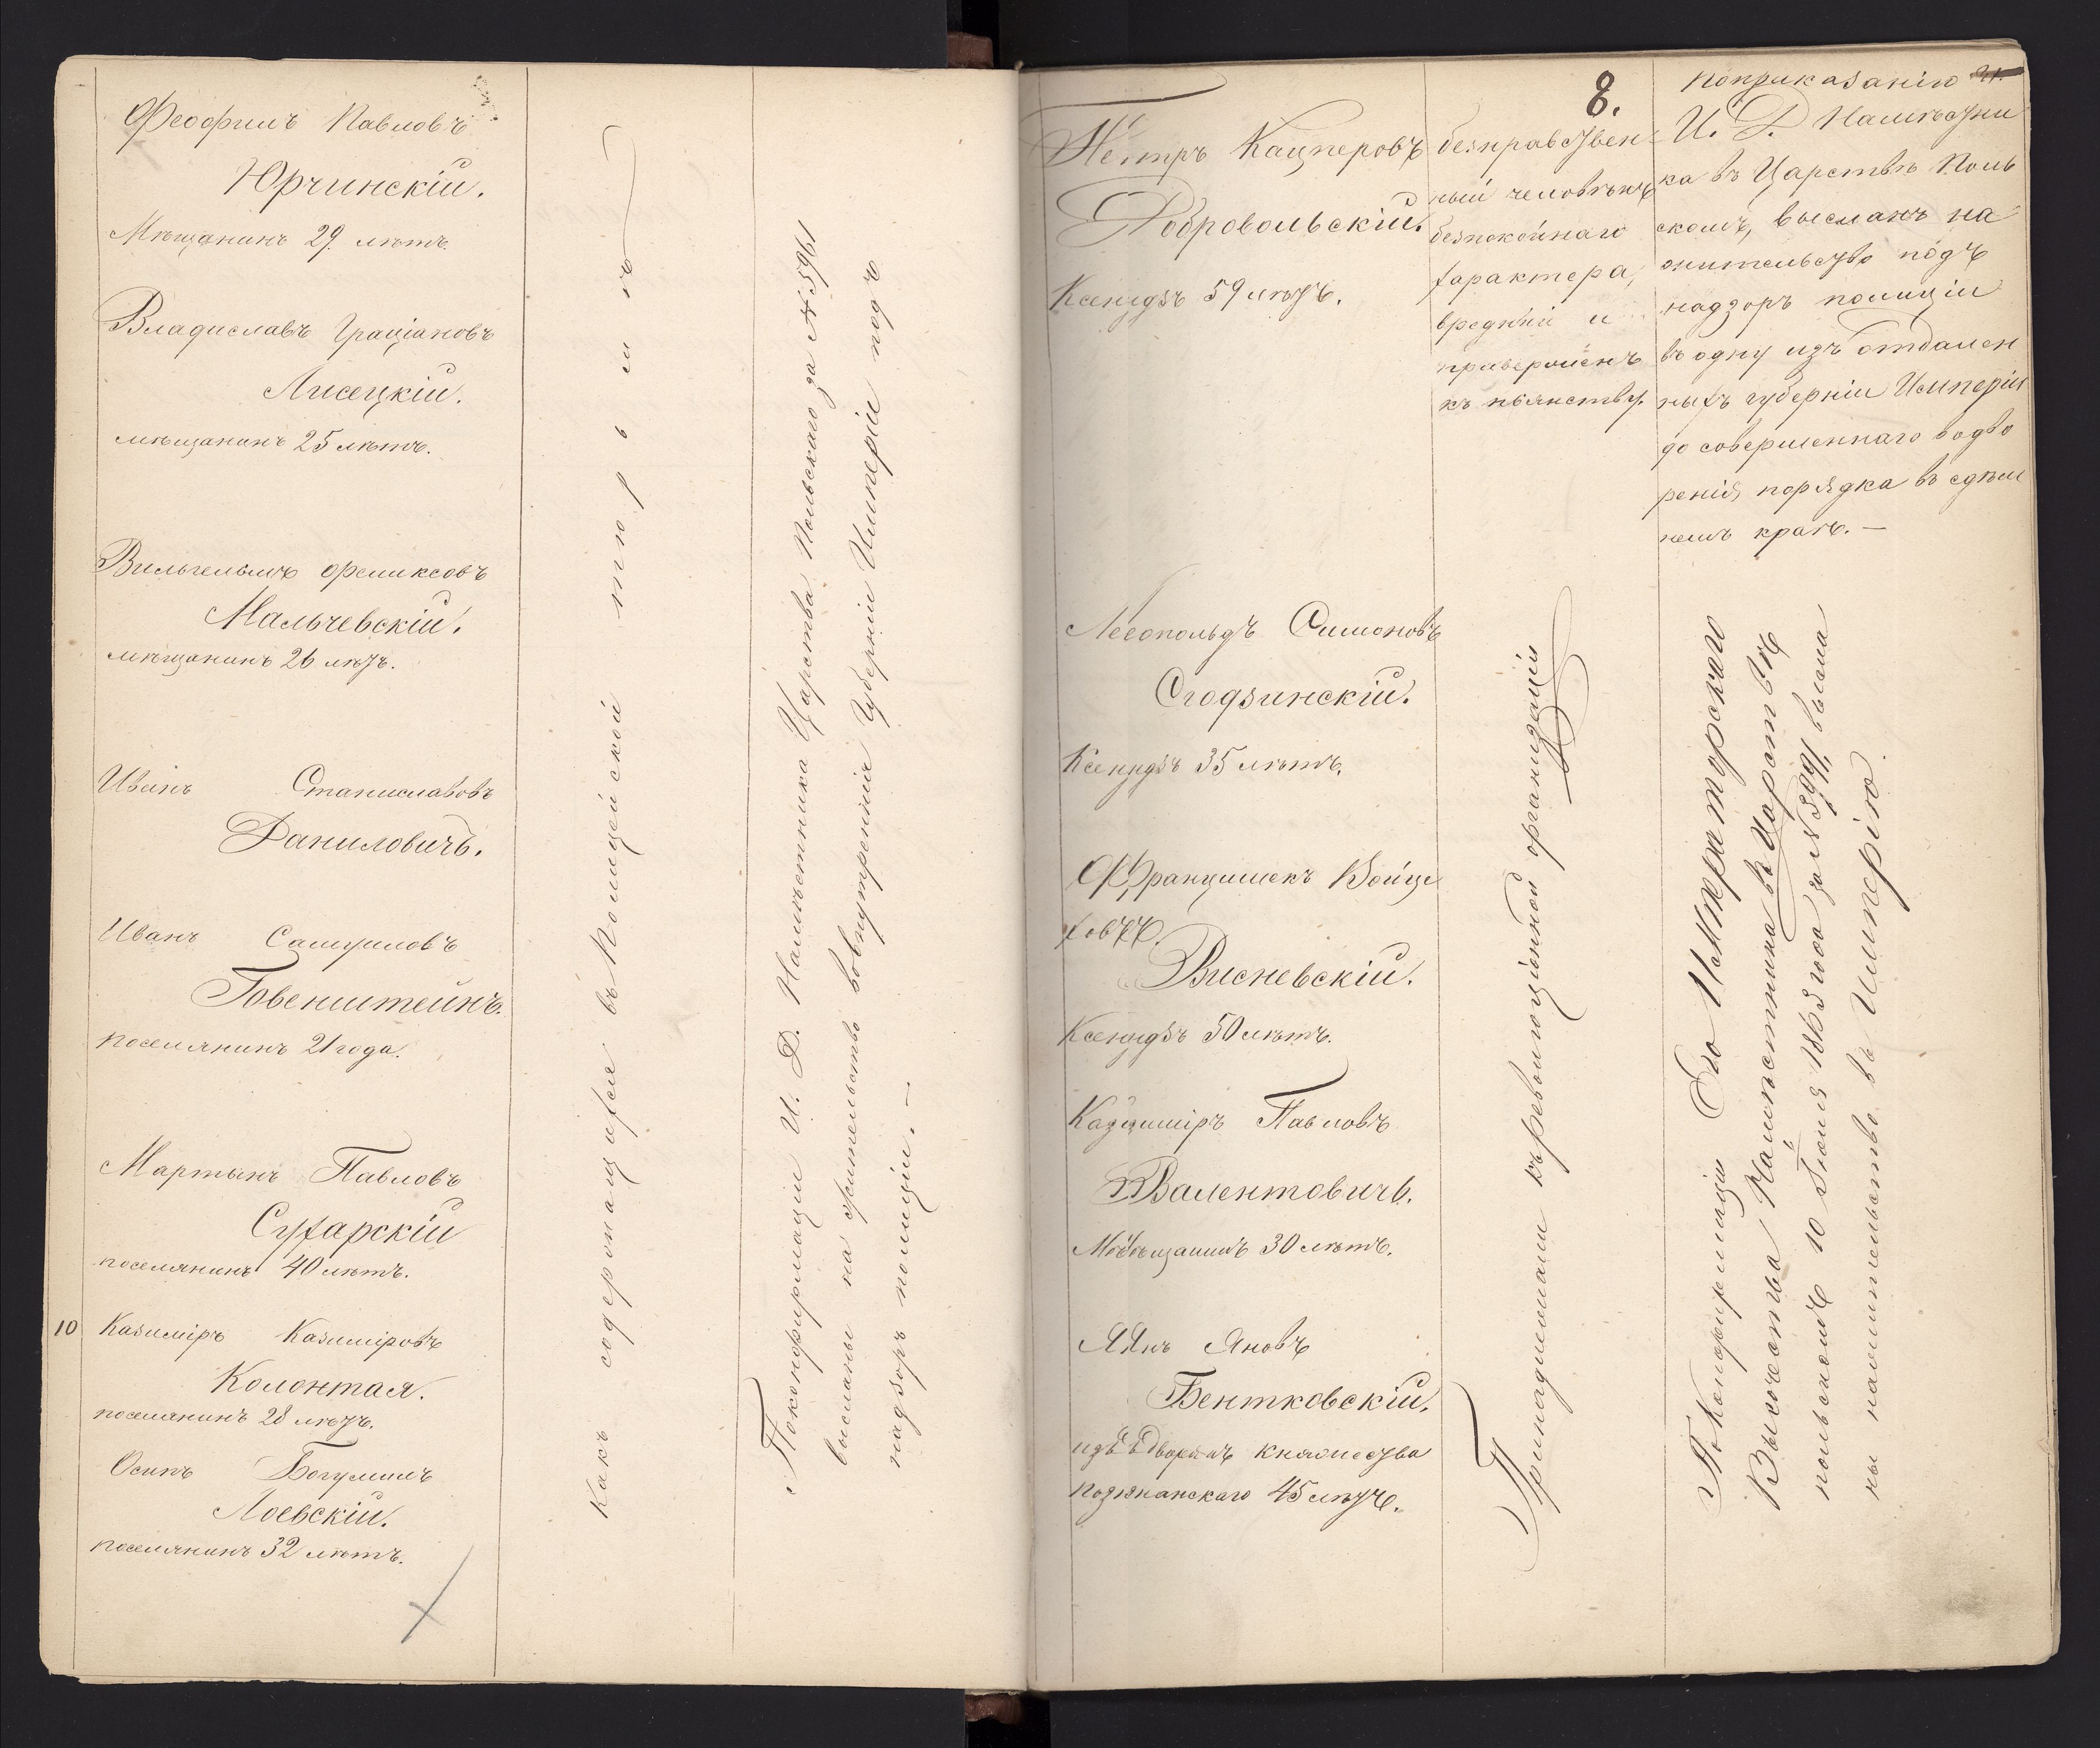 Феофилъ Павловъ
Юрчинскій.
Мѣщанинъ 29 лѣтъ.
Владиславъ Граціановъ
Лисецкій.
мѣщанинъ 25 лѣтъ.
Вильгельмъ Феликсовъ
Мальчевскій.
мѣщанинъ 26 лѣтъ.
Иванъ Станиславовъ
Даниловичъ.
Иванъ Самуиловъ
Говенштейнъ.
поселянинъ 21 года.
Мартынъ Павловъ
Сухарскій
поселянинъ 40 лѣтъ.
10 Казиміръ Казиміровъ
Колонтая.
поселянинъ 28 лѣтъ.
Осипъ Богумилъ
Лоевскій.
поселянинъ 32 лѣтъ.
Какъ содержащихся въ Полицейской тюрьмѣ
Поконфирмаціи И. Д. Намѣстника Царства Польскаго за № 5961
высланы на жительство вовнутреннія Губерніи Имперіи подъ
надзоръ полиціи. —
8.
21.
Петръ Кацперовъ
Добровольскій.
Ксендзъ 59 лѣтъ.
безнравствен-
ный человѣкъ
безпокойнаго
характера,
вредный и
приверженъ
къ пьянству.
поприказанію
И. Д. Намѣстни
ка въ Царствѣ Поль
скомъ, высланъ на
жительство подъ
надзоръ полиціи
въ одну изъ отдален
ныхъ губерніи Имперіи
до совершеннаго водво
ренія порядка въ здѣш
немъ краѣ. —
Леопольдъ Симоновъ
Сгодзинскій.
Ксендзъ 35 лѣтъ.
Францишекъ Войце
ховъ
Висневскій.
Ксендзъ 50 лѣтъ.
Казиміръ Павловъ
Валентовичъ.
Мѣщанинъ 30 лѣтъ.
Янъ Яновъ
Бентковскій.
изъ Дворянъ княжества
познанскаго 45 лѣтъ.
Принадлежали къ революціонной организаціи
По Конфирмаціи Его Императорскаго
Высочества Намѣстника въ Царствѣ
польскомъ 10 Іюля 1863 года за № 5991, высла
ны на жительство въ Имперію.